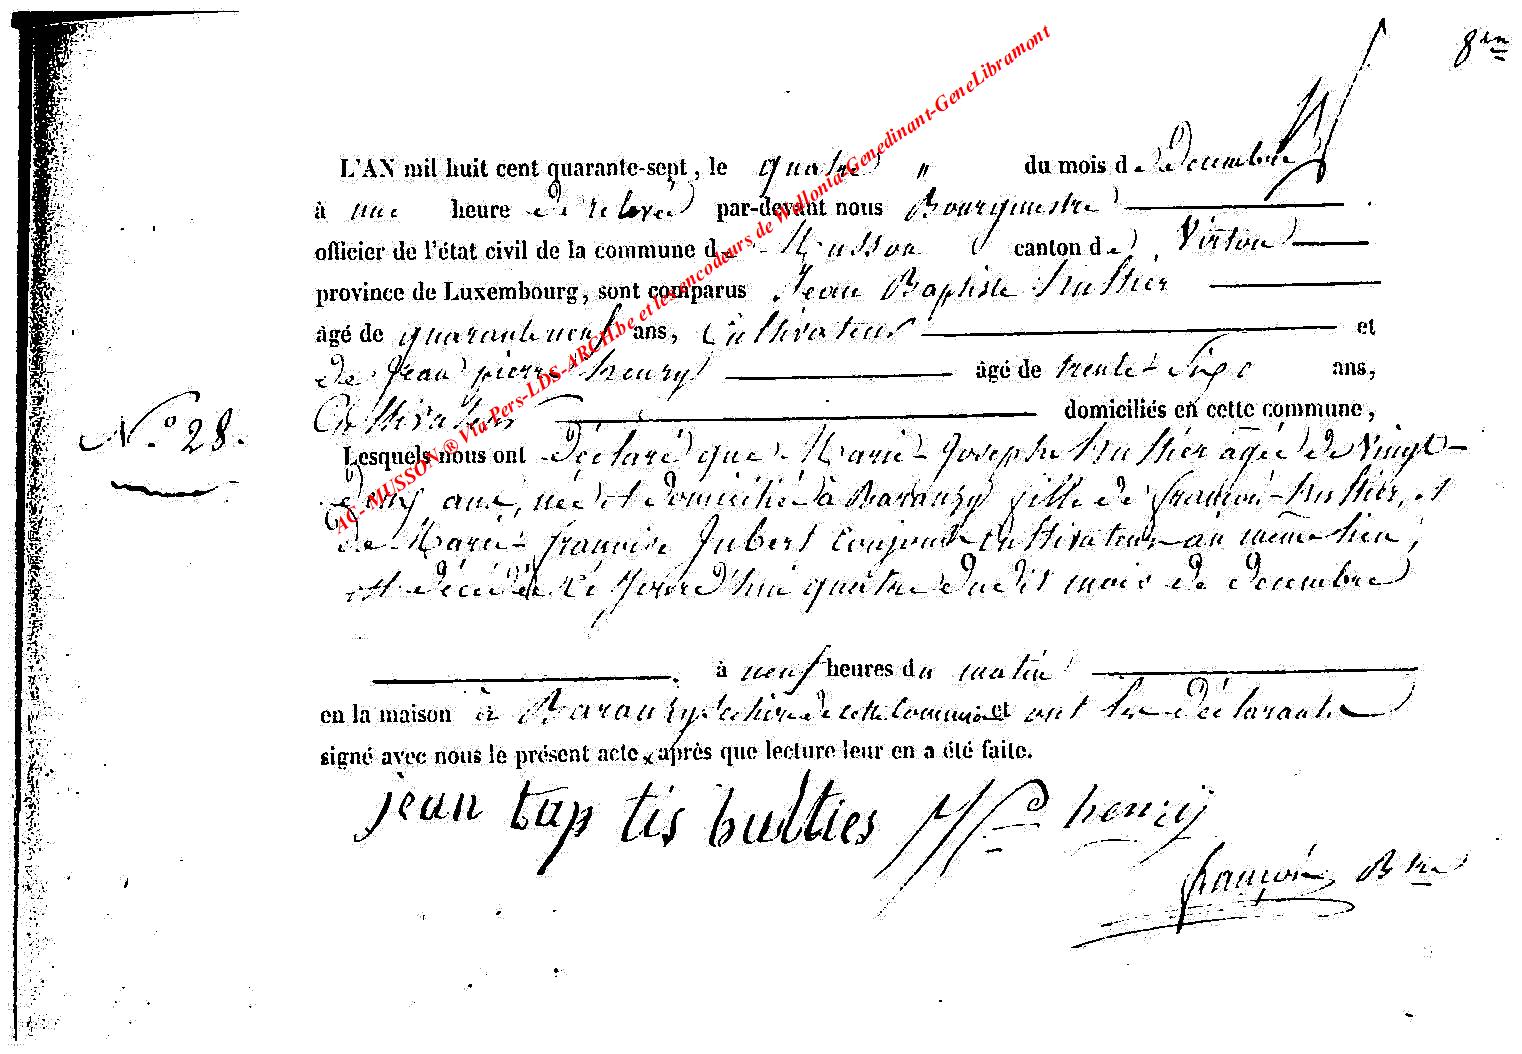 8en
L'AN mil huit cent quarante-sept, le quatre " du mois de Decembre
à une heure de relevée par-devant nous Bourguestre
officier de l'état civil de la commune de Musson canton de Virton
province de Luxembourg, sont comparus Jean Baptiste huttier
âgé de quarante neuf ans, Cultivateur et
de Jean pierre henry âgé de trente-six ans,
Cultivateur domiciliés en cette commune,
N.° 28.
Lesquels nous ont déclaré que Marie-Josephe huttier agée de Vingt-
cinq ans, née et domiciliée à Baranzy fille de françois-huttier, et
de Marie-françoise Jubert conjoints cultivateurs au même lieu,
est décédée ce jourd'hui quatre dudit mois de decembre
à neuf heures du matin
en la maison à Baranzy section de cette Commune et ont les déclarants
signé avec nous le présent acte, après que lecture leur en a été faite.
jean bap tis hulties henry
françois Btre
AC- MUSSON ® Via Pers-LDS-ARCH.be et les encodeurs de Wallonia-Genedinant-GeneLibramont